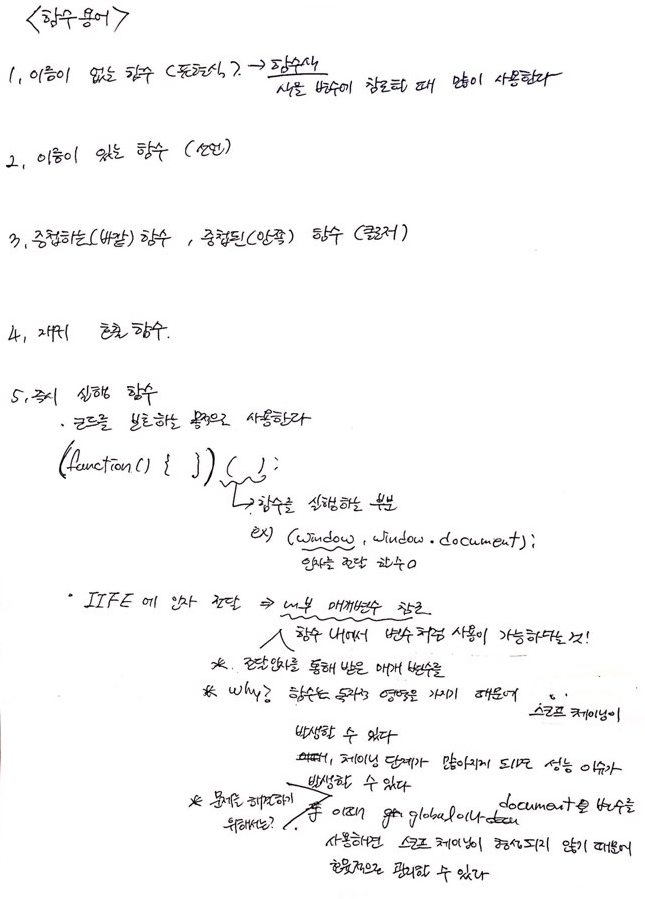 <함수용어>
1, 이름이 없는 함수 (표현식). → 함수식
식을 변수에 참조할 때 많이 사용한다
2, 이름이 있는 함수 (선언)
3, 중첩하는(바깥) 함수 , 중첩된(안쪽) 함수 (클로저)
4, 재귀 호출 함수.
5, 즉시 실행 함수
· 코드를 보호하는 목적으로 사용한다
(function() { }) ( );
→ 함수를 실행하는 부분
ex) (window, window.document);
인자를 전달 할수o
· IIFE에 인자 전달 ⇒ 내부 매개변수 참조
함수 내에서 변수처럼 사용이 가능하다는 것!
* . 전달인자를 통해 받은 매개 변수를
* Why? 함수는 독자적 영역을 가지기 때문에 스코프 체이닝이
발생할 수 있다
이때, 체이닝 단계가 많아지게 되면 성능 이슈가
발생할 수 있다
* 문제를 해결하기
위해서는?
이때 global이나 document를 변수를
사용하면 스코프 체이닝이 형성되지 않기 때문에
효율적으로 관리할 수 있다